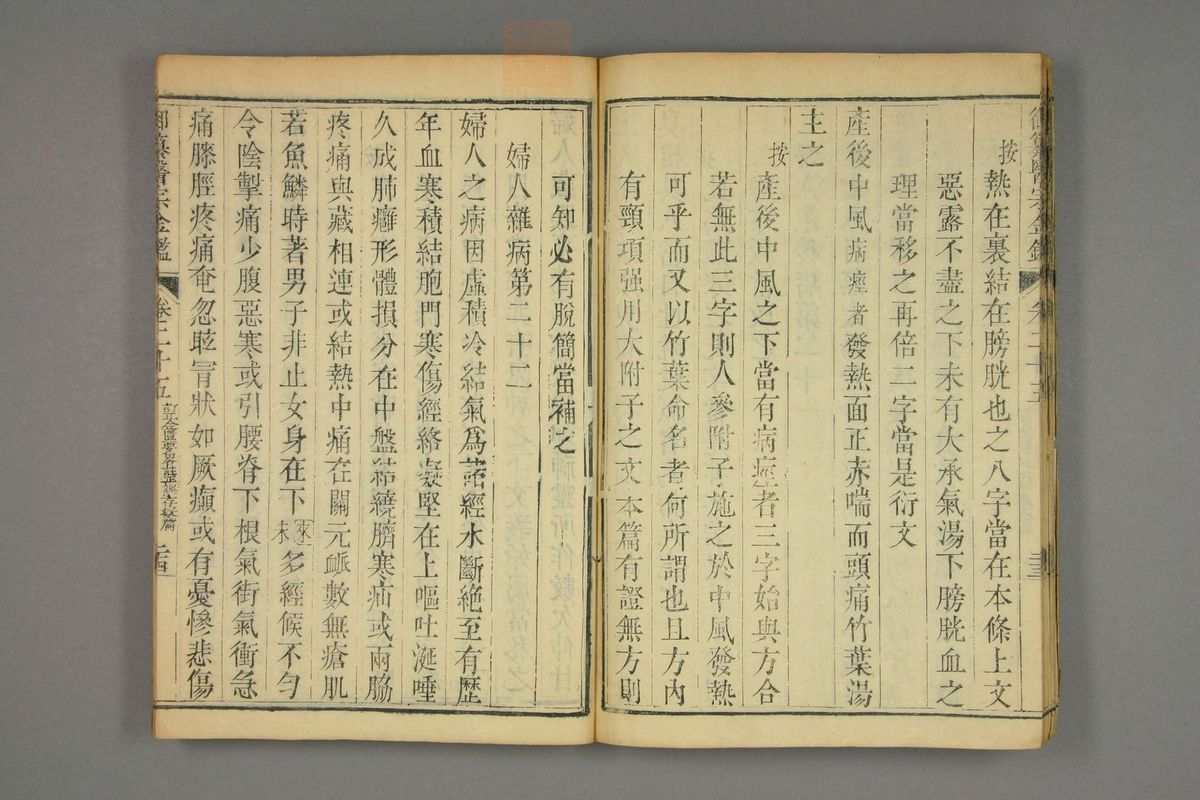 按熱在裏結在膀胱也之八字當在本條上文
惡露不盡之下未有大承氣湯下膀胱血之
理當移之再倍二字當是衍文
產後中風病痙者發熱面正赤喘而頭痛竹葉湯
主之
按產後中風之下當有病痙者三字始與方合
若無此三字則人參附子施之於中風發熱
可乎而又以竹葉命名者何所謂也且方內
有頸項强用大附子之文本篇有證無方則
可知必有脫簡當補之
婦人雜病第二十二
婦人之病因虛積冷結氣爲諸經水斷絕至有歷
年血寒積結胞門寒傷經絡凝堅在上嘔吐涎唾
久成肺癰形體損分在中盤結繞臍寒疝或兩脇
疼痛與藏相連或結熱中痛在關元脈數無瘡肌
若魚鱗時著男子非止女身在下來未多經候不勻
令陰掣痛少腹惡寒或引腰脊下根氣街氣衝急
痛膝脛疼痛奄忽眩冐狀如厥癲或有憂慘悲傷
御纂醫宗金鑑 卷二十五